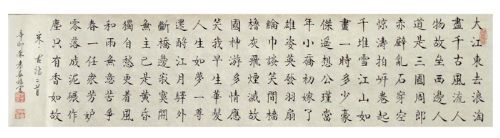 大江東去浪淘
盡千古風流人
物故壘西邊人
道是三國周郎
赤壁亂石穿空
驚濤拍岸卷起
千堆雪江山如
畫一時多少豪
傑遙想公瑾當
年小喬初嫁了
雄姿英發羽扇
綸巾談笑間檣
櫓灰飛煙滅故
國神游多情應
笑我早生華髮
人生如夢一尊
還酹江月驛外
斷橋邊寂寞開
無主已是黃昏
獨自愁更著風
和雨無意苦爭
春一任群芳妒
零落成泥碾作
塵只有香如故
詞二首